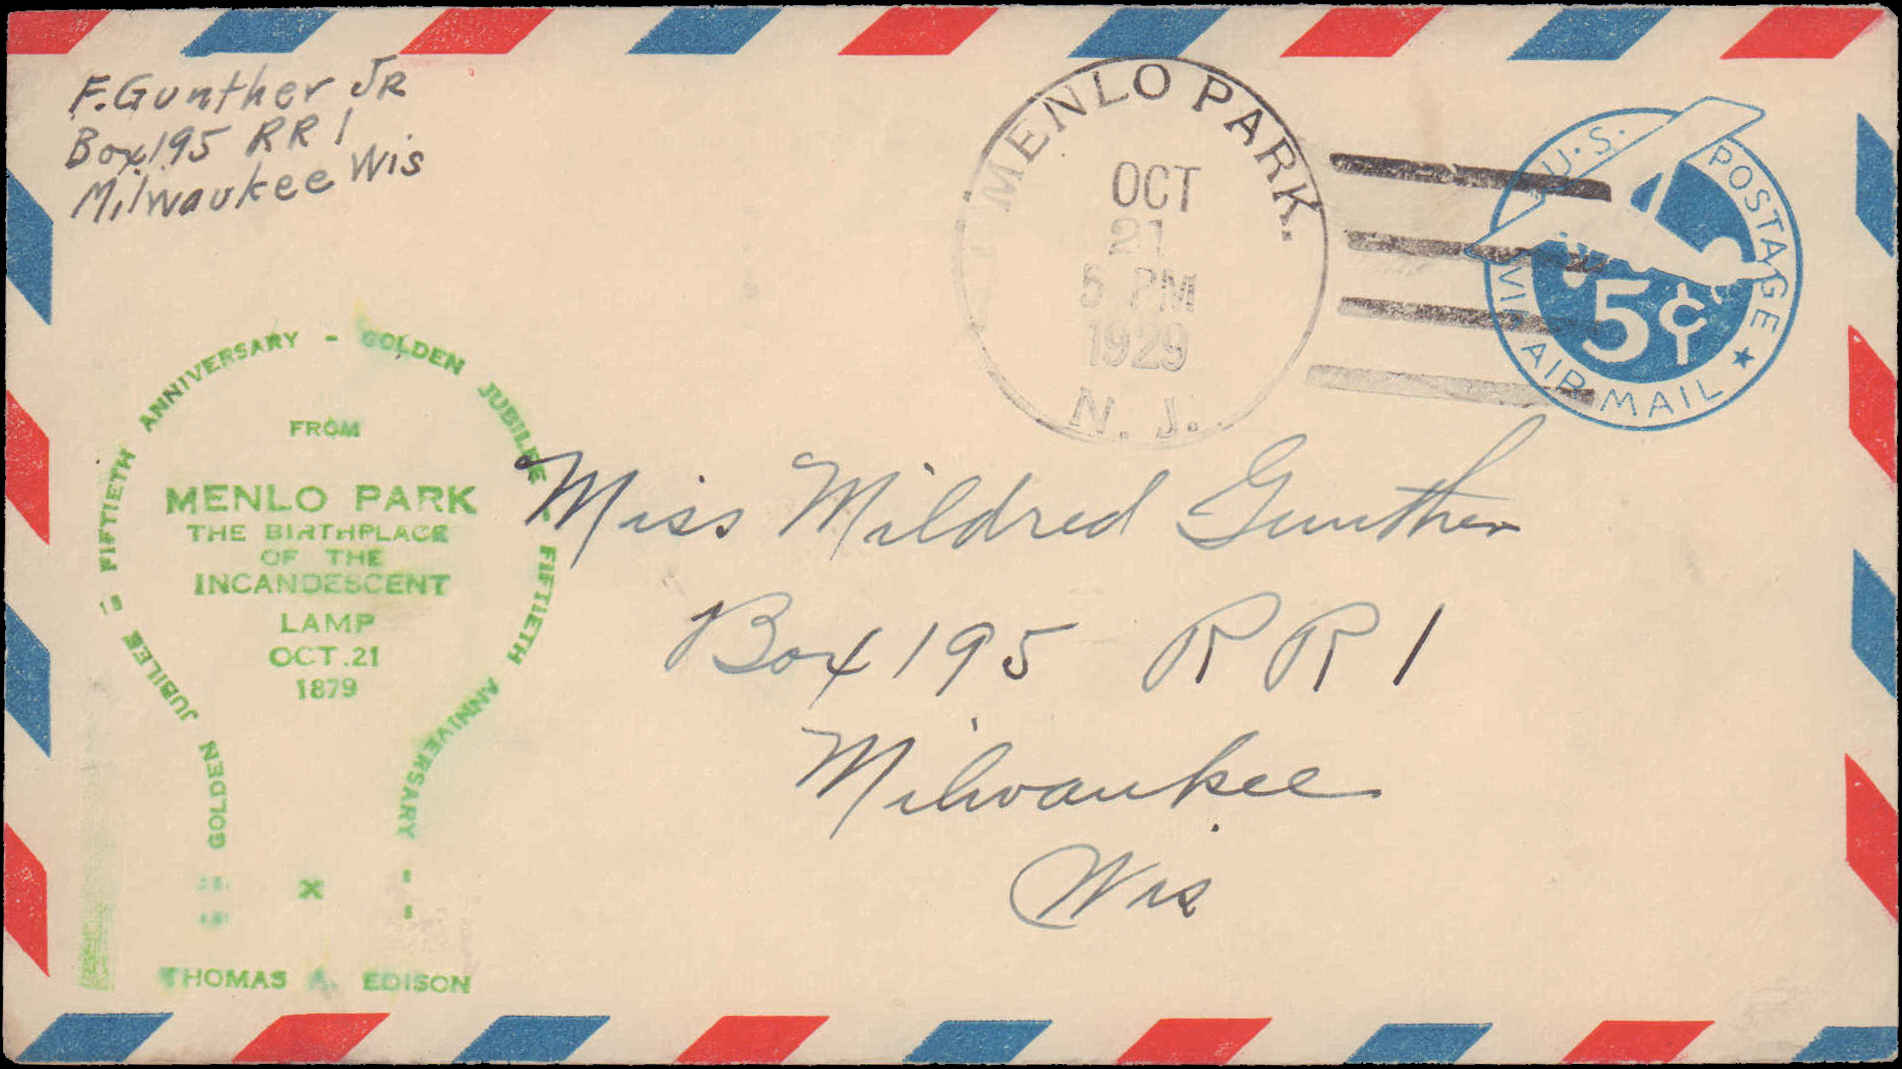 F. Gunther JR
Box 195 RR 1
Milwaukee Wis
MENLO PARK.
OCT
21
5 PM
1929
N. J.
U.S. POSTAGE
5¢
VIA AIR MAIL
GOLDEN JUBILEE - FIFTIETH ANNIVERSARY - GOLDEN JUBILEE - FIFTIETH ANNIVERSARY - -
FROM
MENLO PARK
THE BIRTHPLACE
OF THE
INCANDESCENT
LAMP
OCT. 21
1879
X
THOMAS A. EDISON
Miss Mildred Gunther
Box 195 RR 1
Milwaukee
Wis